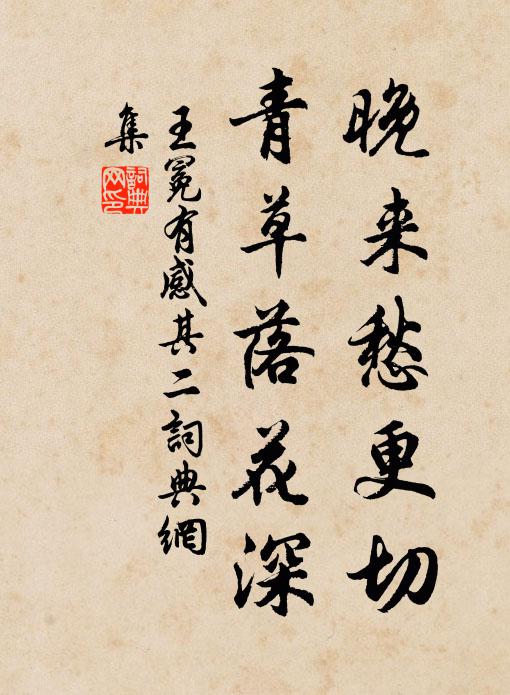 晚来愁更切
青草落花深
王冕有感其二詞典網
集
詞典
网印